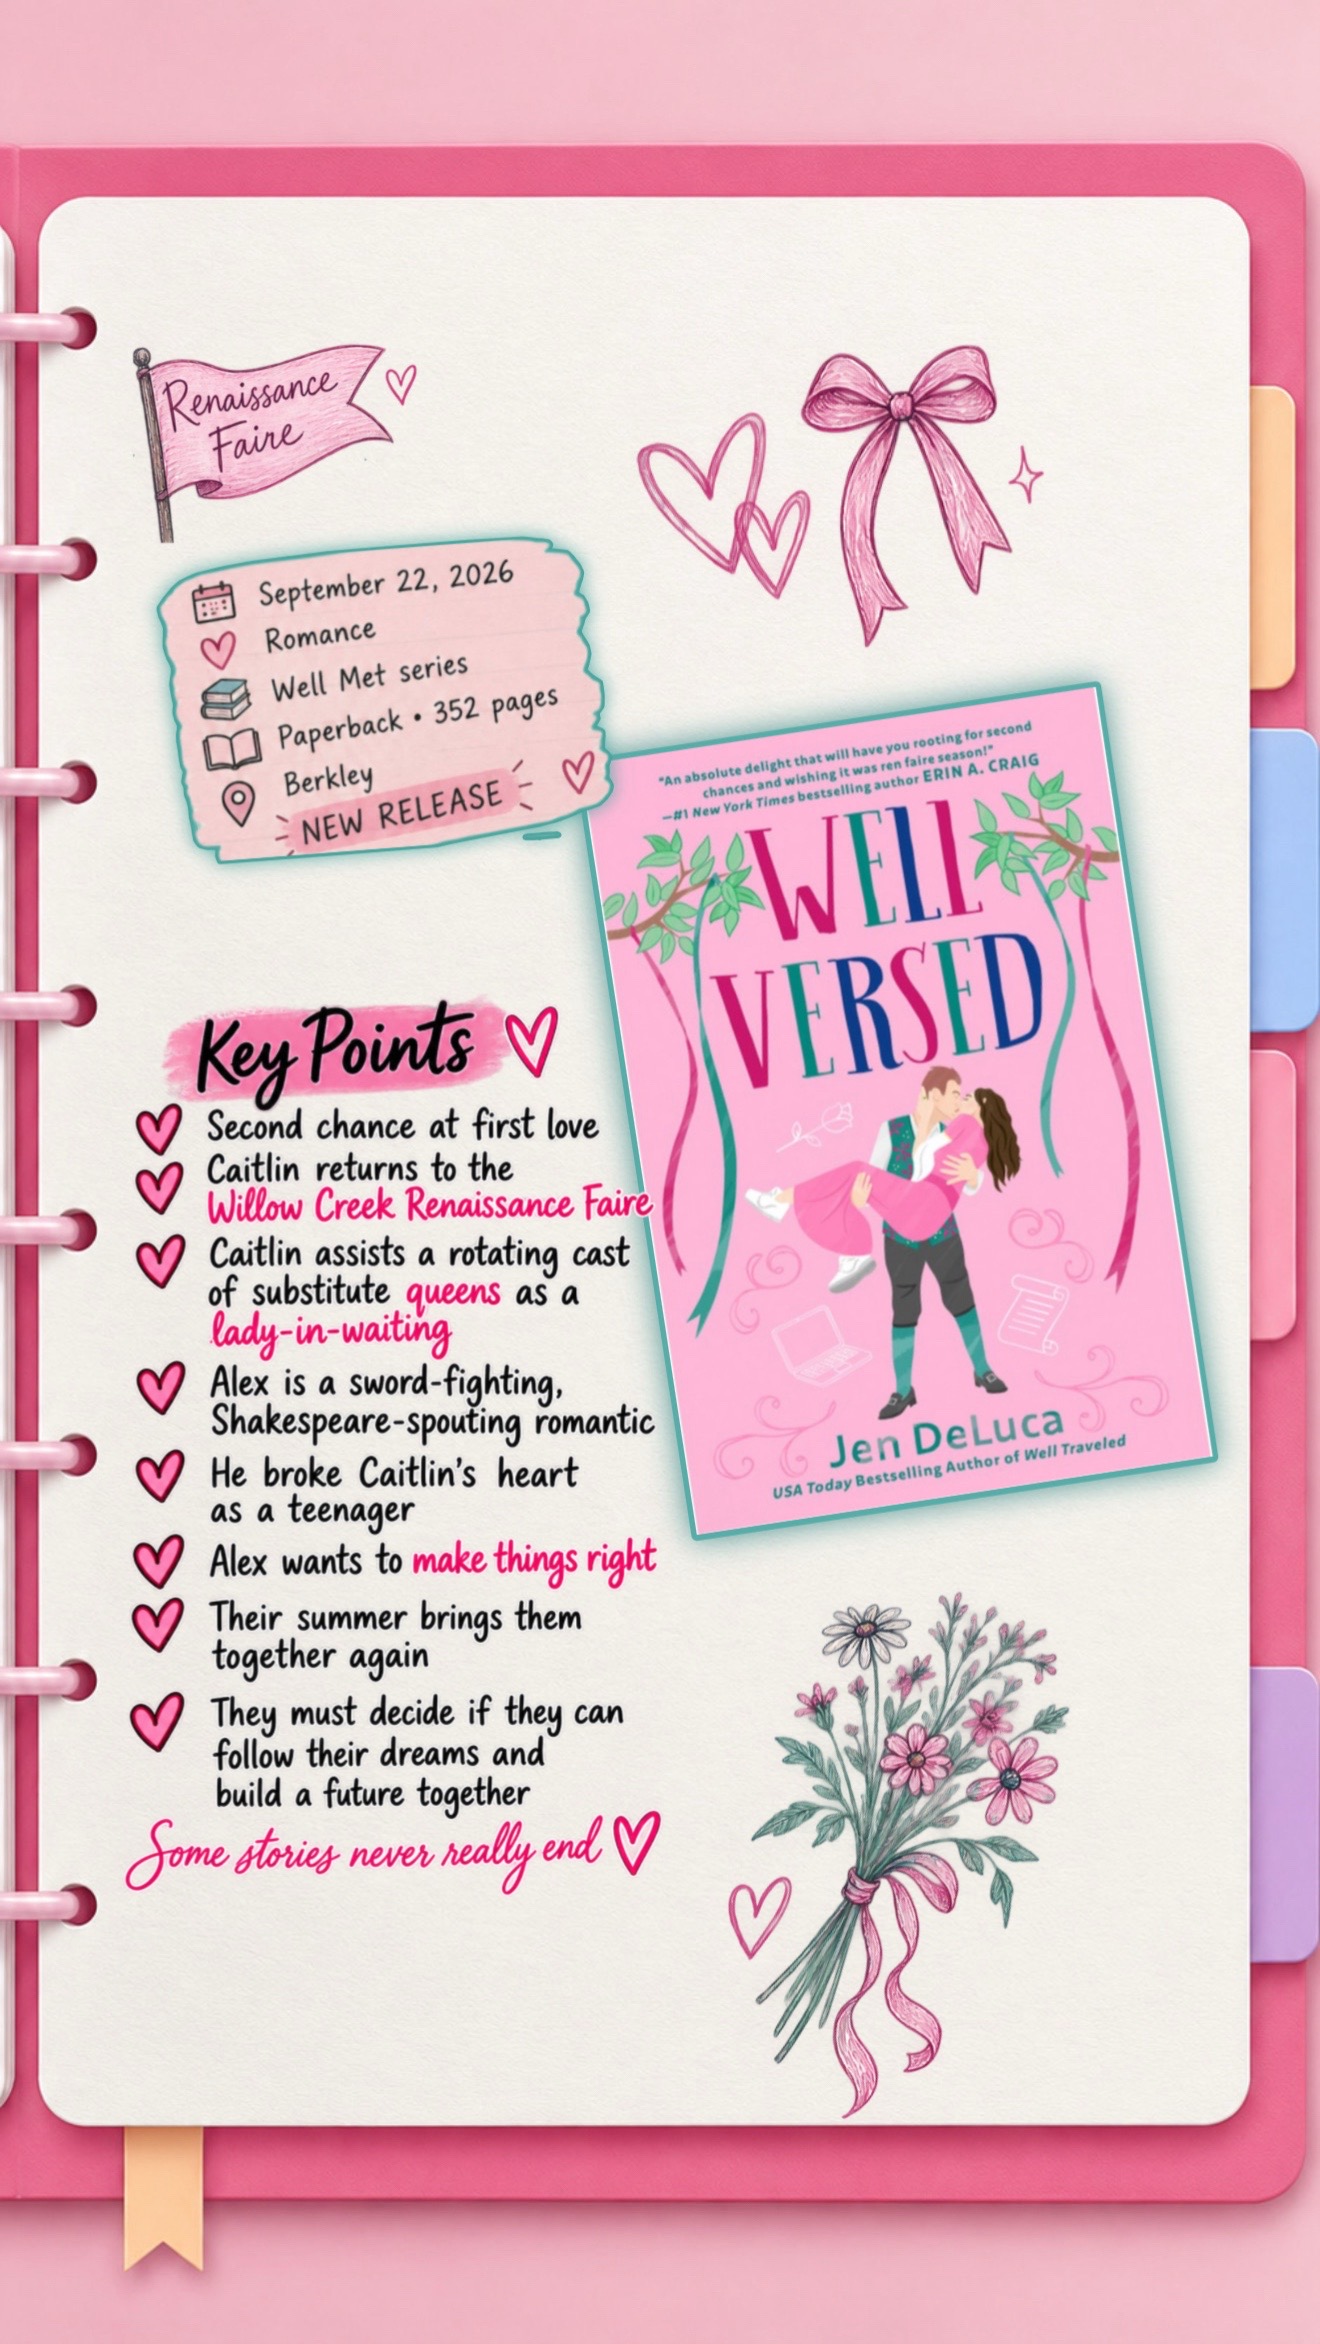 Renaissance
Faire
September 22, 2026
Romance
Well Met series
Paperback • 352 pages
Berkley
NEW RELEASE
"An absolute delight that will have you rooting for second
chances and wishing it was ren faire season!"
—#1 New York Times bestselling author ERIN A. CRAIG
WELL
VERSED
Jen DeLuca
USA Today Bestselling Author of Well Traveled
Key Points
Second chance at first love
Caitlin returns to the
Willow Creek Renaissance Faire
Caitlin assists a rotating cast
of substitute queens as a
lady-in-waiting
Alex is a sword-fighting,
Shakespeare-spouting romantic
He broke Caitlin's heart
as a teenager
Alex wants to make things right
Their summer brings them
together again
They must decide if they can
follow their dreams and
build a future together
Some stories never really end